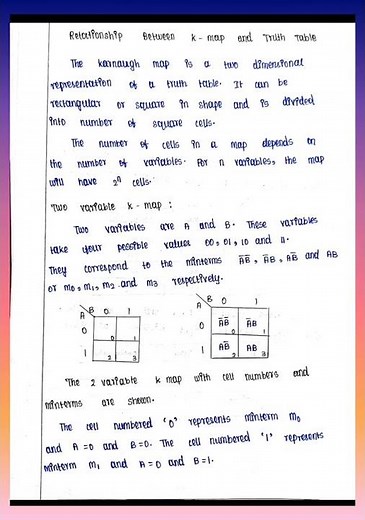 Relationship Between k-map and Truth Table
The karnaugh map is a two dimensional
representation of a truth table. It can be
rectangular or square in shape and is divided
into number of square cells.
The number of cells in a map depends on
the number of variables. For n variables, the map
will have 2ⁿ cells.
Two variable k-map :
Two variables are A and B. These variables
take four possible values 00, 01, 10 and 11.
They correspond to the minterms A̅B̅, A̅B, AB̅ and AB
or m₀, m₁, m₂ and m₃ respectively.
A B 0 1
0 0 1
1 2 3
A B 0 1
0 A̅B̅ 0 A̅B 1
1 AB̅ 2 AB 3
The 2 variable k map with cell numbers and
minterms are shown.
The cell numbered '0' represents minterm m₀
and A=0 and B=0. The cell numbered '1' represents
minterm m₁ and A=0 and B=1.